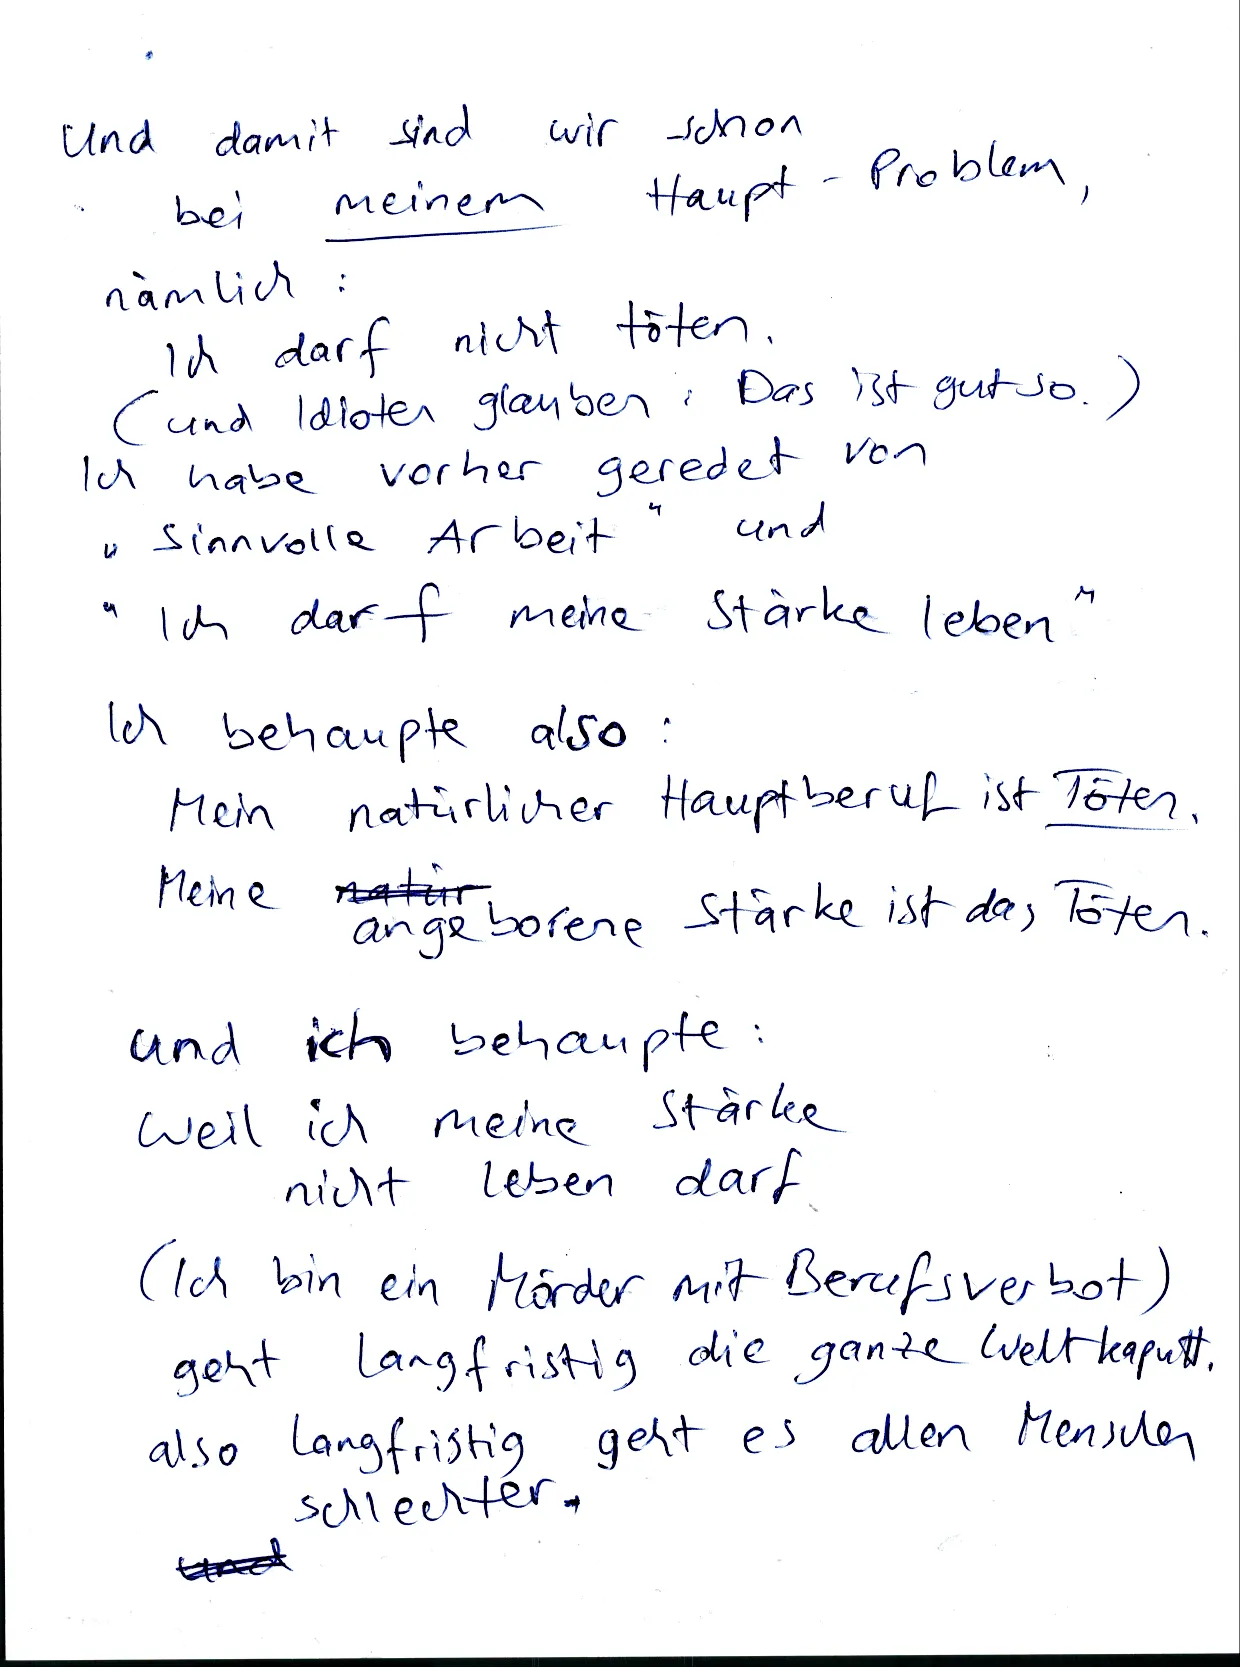 Und damit sind wir schon
bei meinem Haupt-Problem,
nämlich:
Ich darf nicht töten.
(und Idioten glauben: Das ist gut so.)
Ich habe vorher geredet von
"sinnvolle Arbeit" und
"Ich darf meine Stärke leben"
Ich behaupte also:
Mein natürlicher Hauptberuf ist Töten.
Meine natür
angeborene Stärke ist das Töten.
und ich behaupte:
weil ich meine Stärke
nicht leben darf
(Ich bin ein Mörder mit Berufsverbot)
geht langfristig die ganze Welt kaputt.
also langfristig geht es allen Menschen
schlechter.
und